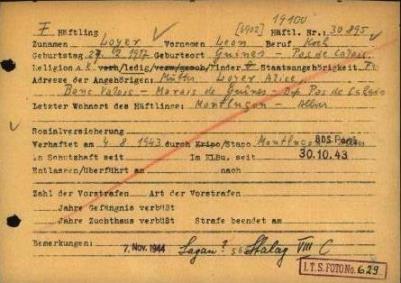 19100
F Häftling [6902] Häftl. Nr.: 30 895
Zunamen Loyer Vornamen Leon Beruf Koch
Geburtstag 27. 2 1917 Geburtsort Guines - Pas de Calais
Religion verh/ledig/verw/gesch/Kinder Staatsangehörigkeit Fr.
Adresse der Angehörigen: Mutter Loyer Alice
Banc Valois - Marais de Guînes - Dép Pas de Calais
Letzter Wohnort des Häftlings: Montluçon - Allier
Sozialversicherung
Verhaftet am 4 8 1943 durch Kripo/Stapo Montluçon BDS Paris
in Schutzhaft seit Im KLBu. seit 30.10.43
Entlassen/überführt an nach
Zahl der Vorstrafen Art der Vorstrafen
Jahre Gefängnis verbüßt
Jahre Zuchthaus verbüßt Strafe beendet am
Bemerkungen: 7. Nov. 1944 Sagan? Stalag VIII C
I.T.S. FOTO No. 629